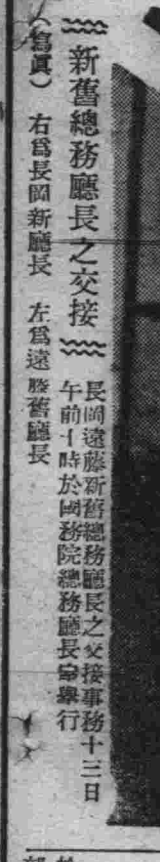 新舊總務廳長之交接
長岡遠藤新舊總務廳長之交接事務十三日
午前十時於國務院總務廳長室舉行
(寫眞) 右爲長岡新廳長 左爲遠藤舊廳長